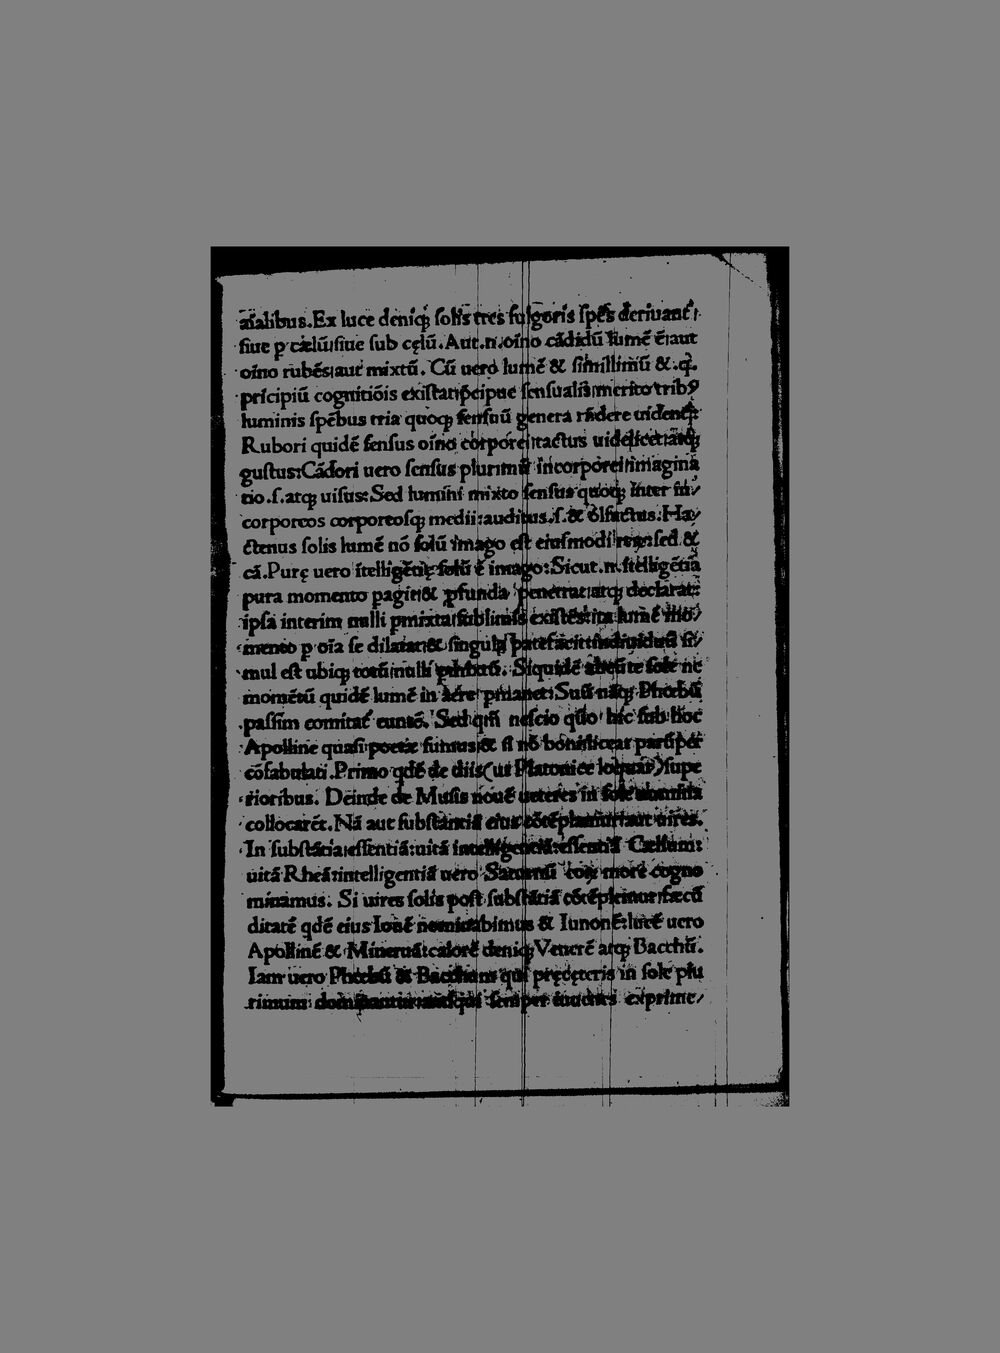 aīalibus.Ex luce deniqꝫ solis tres fulgoris spēs deriuant͛
siue p cælū:siue sub cęlū.Aut.n.oīno cādidū lumē ē:aut
oīno rubēs:aut mixtū. Cū uero lumē & simillimū & .q̄.
prīcipiū cognitiōis existat:p̄cipue sensualis:merito trib⁹
luminis spēbus tria quoqꝫ sensuū genera
Rubori quidē sensus oīno corporei:tactus uidelicet:atqꝫ
gustus:Cādori uero sensus plurimū incorporei:imagina
tio.ſ.atqꝫ uisus:Sed lumini mixto sensus quoqꝫ inter in/
corporeos corporeosqꝫ medii:auditus.ſ.& olfactus.Ha/
ctenus solis lumē nō solū imago est eiusmodi re⁊:sed &
cā.Purę uero ītelligētię solū ē imago:Sicut.n.ītelligētia
pura momento pagit:& ꝓfunda penetrat:atqꝫ declarat:
ipsa interim nulli pmixta:sublimis existēs:ita lumē mo/
mento p oīa se dilatat:& singula patefacit:indiuiduū si/
mul est ubiqꝫ totū:nulli Siquidē abeūte sole ne
momētū quidē lumē in aere Suū nāqꝫ Phœbū
passim comitat͛ eundē. Sed qm̄ nescio quō hic sub hoc
Apolline quasi poetæ sumus:& si nō boni:liceat parūper
cōfabulati.Primo qdē de diis(ut Platonice loquar)supe
rioribus. Deinde de Musis nouē ueteres in sole numina
collocarēt.Nā aut substantiā eius cōtēplamur:aut uires.
In substātia:essentiā:uitā intelligentiā:essentiā Cælium:
uitā Rheā:intelligentiā uero Saturnū more cogno
minamus. Si uires solis post substātiā cōtēplemur:fæcū
ditatē qdē eius Iouē nominabimus & Iunonē:lucē uero
Apollinē & Mineruā:calorē deniqꝫ Venerē atqꝫ Bacchū.
Iam uero Phœbū & Bacchum qui pręcęteris in sole plu
rimum dominantur:antiqui semper iuuenes exprime/